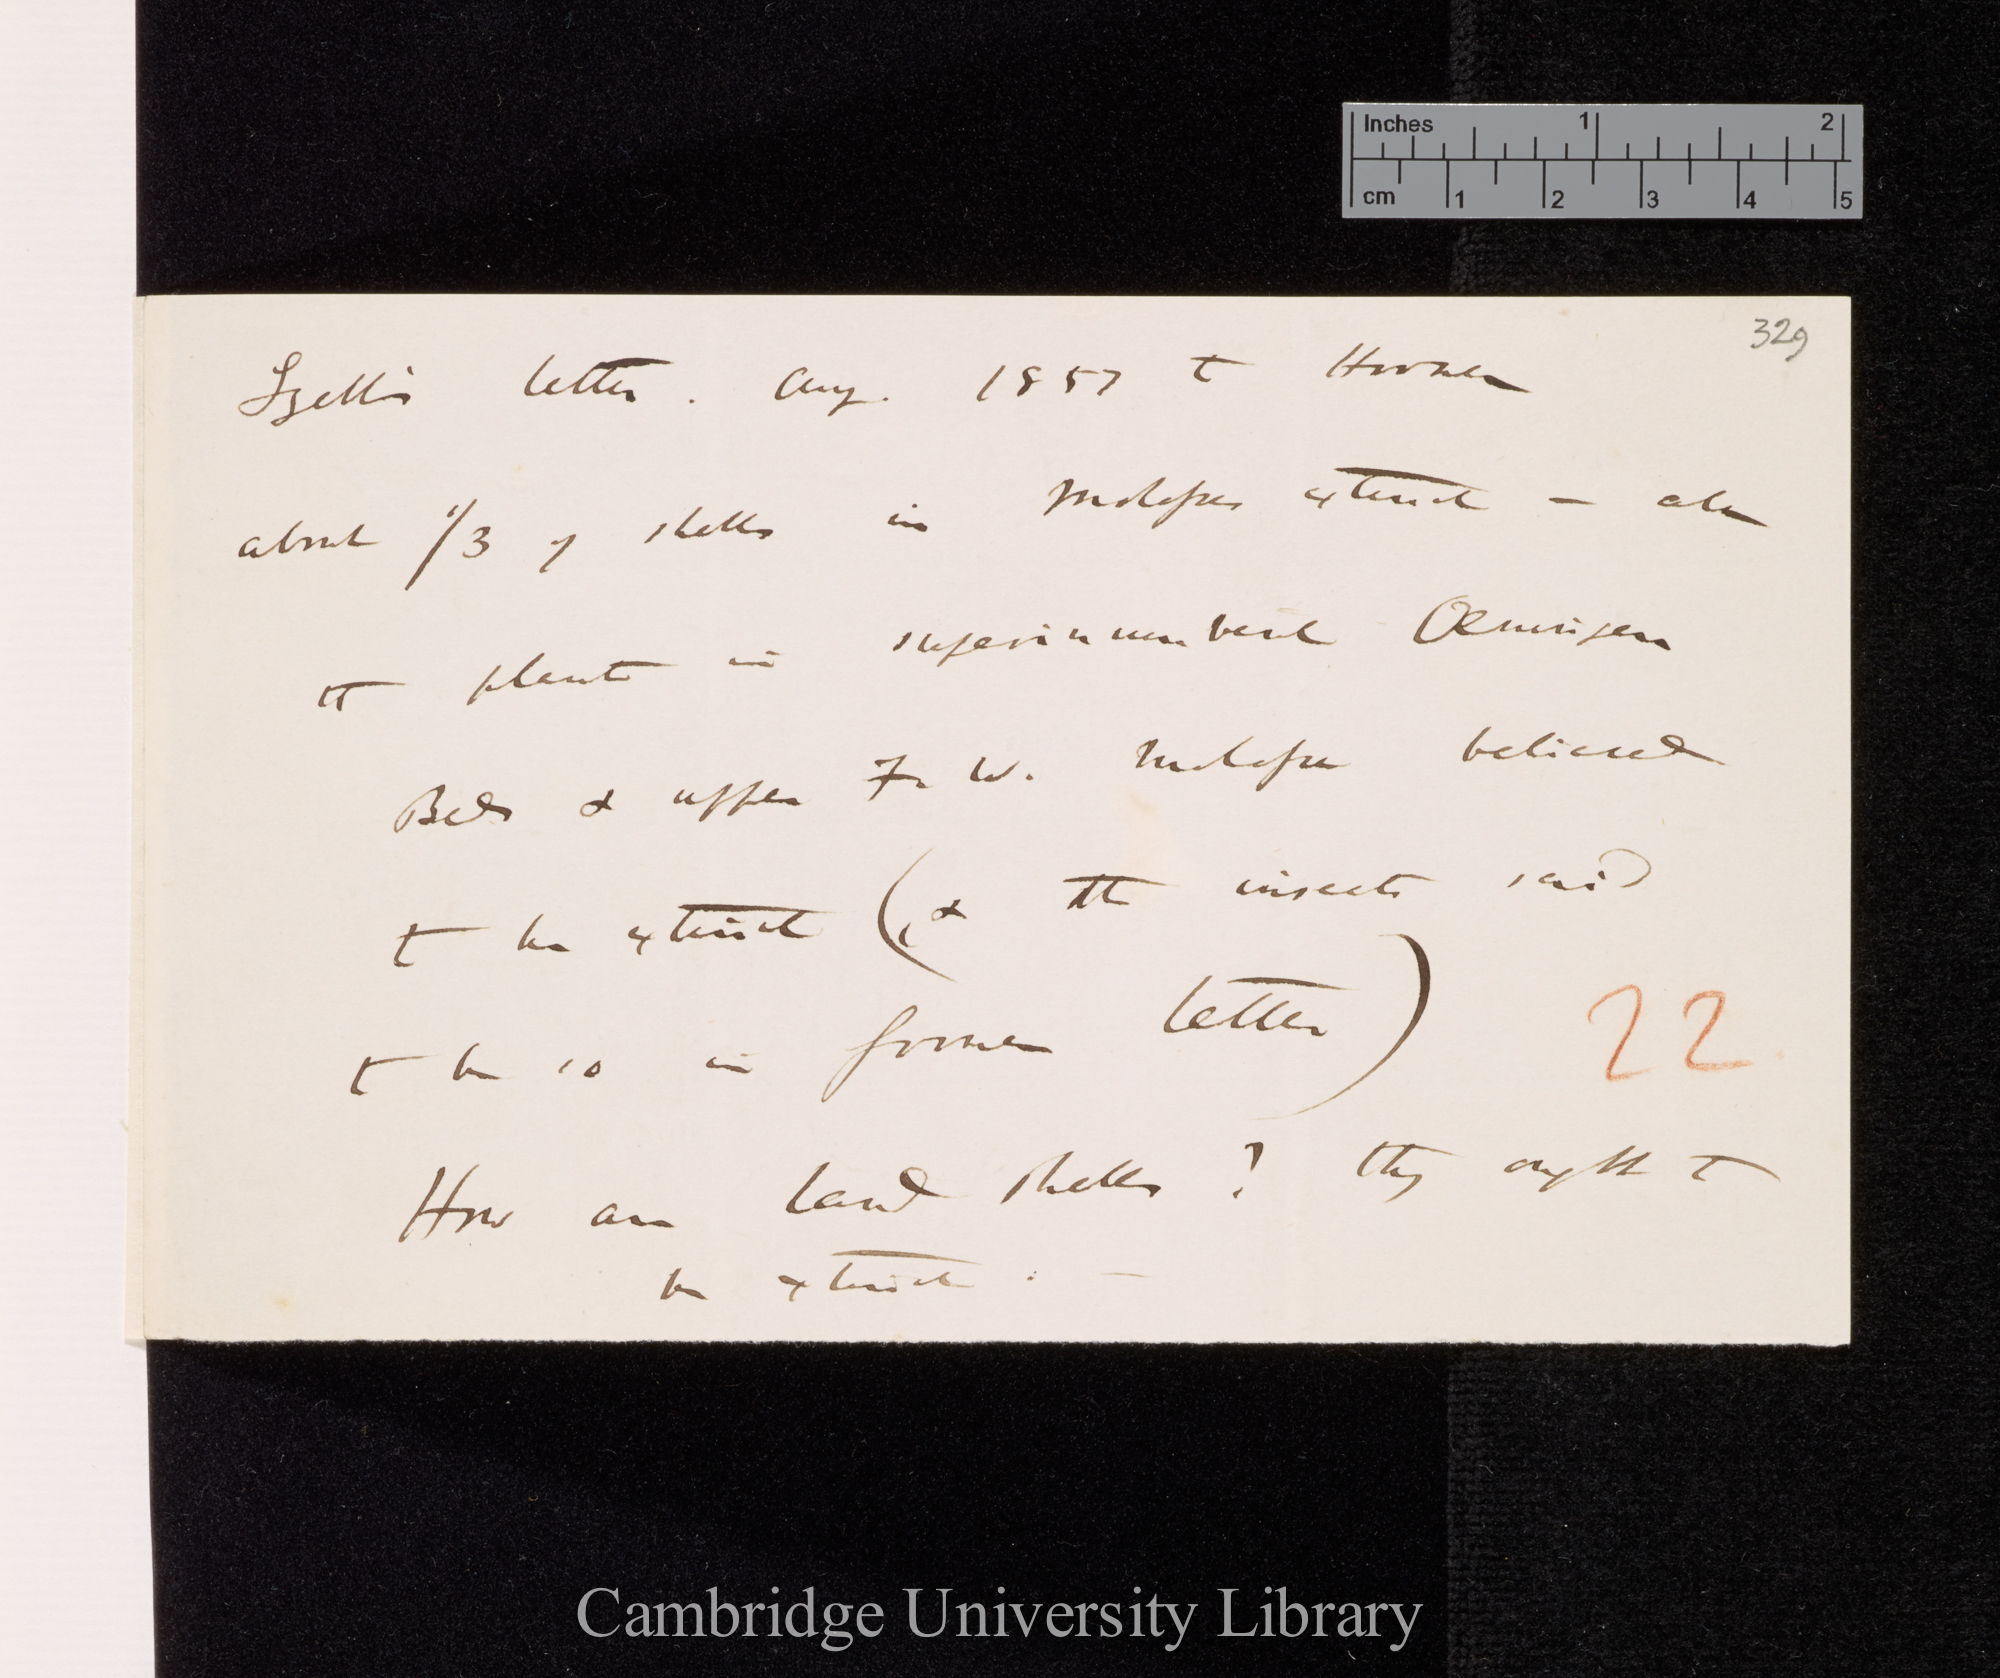 Inches 1 2
cm 1 2 3 4 5
329
Lyell's letter. Aug. 1857 to Horner
about 1/3 of shells in Molasse extinct — all
the plants in superincumbent Œningen
Beds & upper F. W. Molasse believed
to be extinct (& the insects said
to be so in former letter)
22
How are land shells? they ought to
be extinct. —
Cambridge University Library